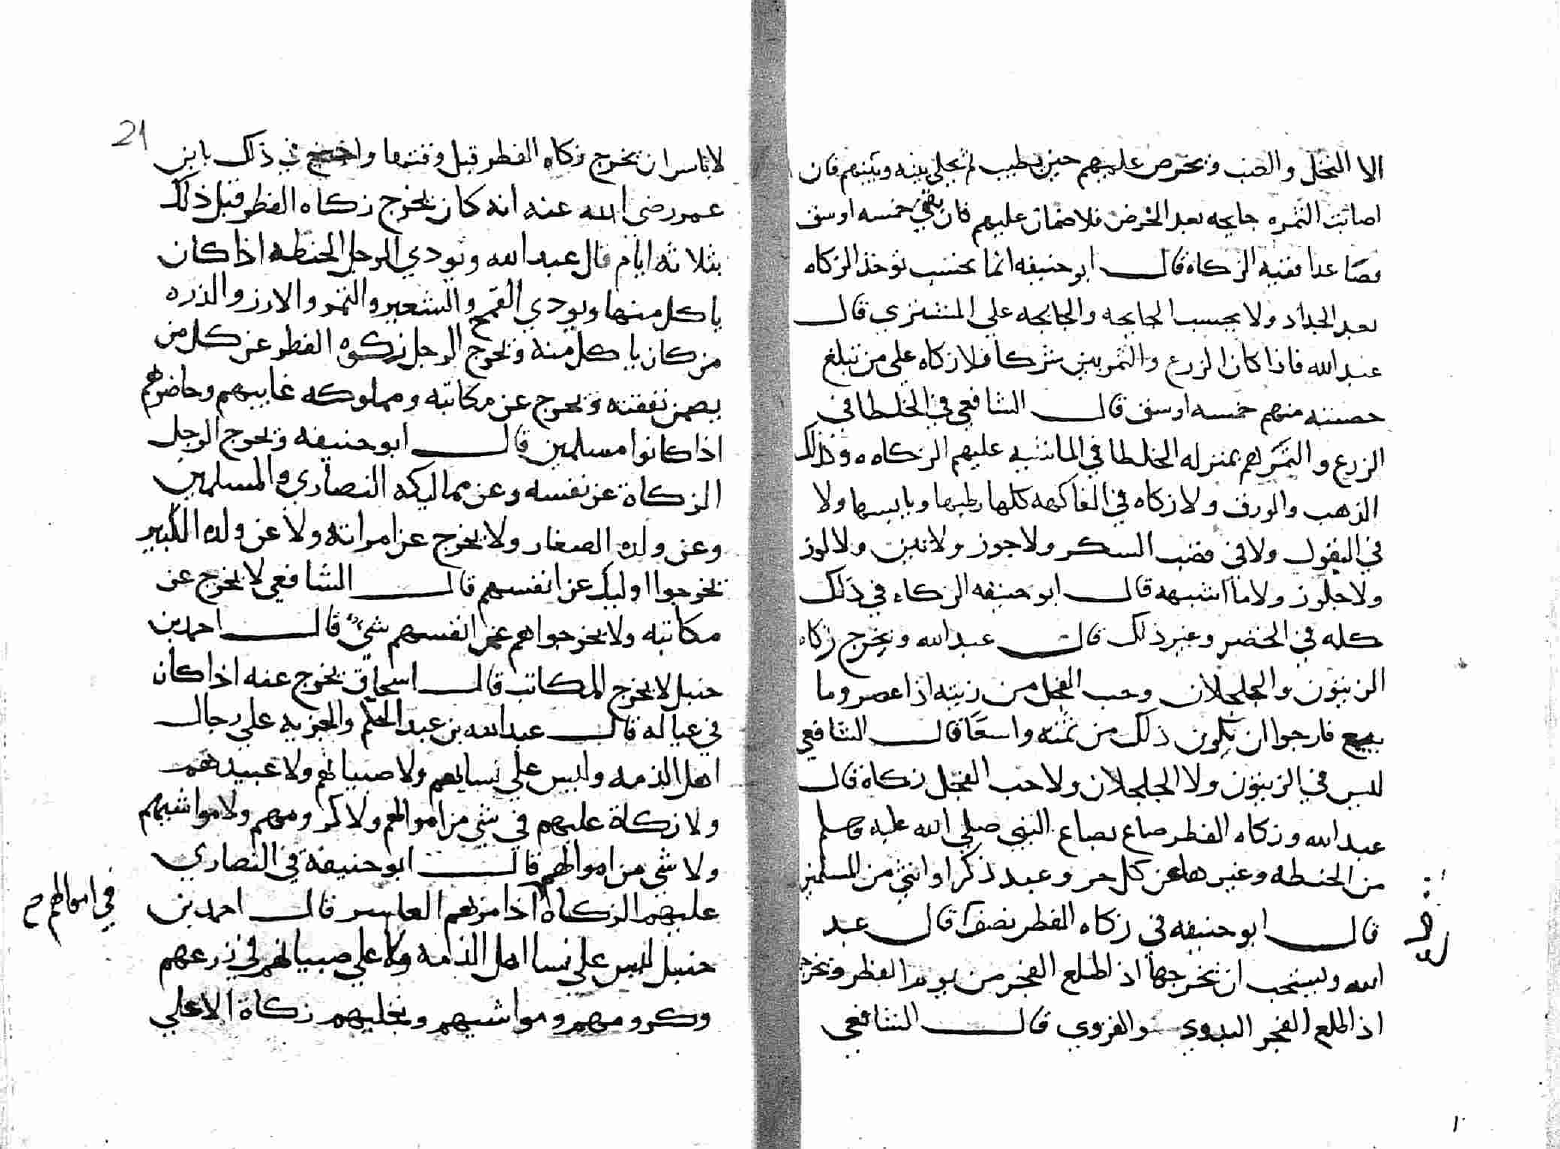 الا النخل والعنب ويخرص عليهم حين يطيب ثم يخلى بينه وبينهم فان
اصابت الثمره جايحه بعد الخرص فلا ضمان عليهم فان بقي خمسه اوسق
فصاعدا ففيه الزكاه قال ابو حنيفه انما يحتسب توخذ الزكاه
بعد الجداد ولا يحسب الجايحه والجايحه علي المشتري قال
عبد الله فاذا كان الزرع والثمر بين شركا فلا زكاه علي من تبلغ
حصته منهم خمسه اوسق قال الشافعي في الخلطا في
الزرع والثمر هم بمنزله الخلطا في الماشيه عليهم الزكاه وكذلك
الذهب والورق ولا زكاه في الفاكهه كلها رطبها ويابسها ولا
في البقول ولا في قصب السكر ولا جوز ولا تين ولا لوز
ولا جلوز ولا ما اشبهه قال ابو حنيفه الزكاء في ذلك
كله في الخضر وغير ذلك قال عبد الله ويخرج زكاه
الزيتون والجلجلان وحب الفجل من زيته اذا عصر وما
بيع فارجوا ان يكون ذلك من ثمنه واسعا قال الشافعي
ليس في الزيتون ولا الجلجلان ولا حب الفجل زكاة قال
عبد الله وزكاه الفطر صاع بصاع النبي صلي الله عليه وسلم
من الحنطه وغيرها عن كل حر وعبد ذكرا او انثي من المسلمين
قال ابو حنيفه في زكاه الفطر نصف قال عبد
الله ويستحب ان يخرجها اذا طلع الفجر من يوم الفطر ويخرج
اذا طلع الفجر البدوي والقروي قال الشافعي
21
لا باس ان يخرج زكاه الفطر قبل وقتها واحتج في ذلك بابن
عمر رضي الله عنه انه كان يخرج زكاه الفطر قبل ذلك
بثلاثه ايام قال عبد الله ويودي الرجل الحنطه اذا كان
ياكل منها ويودي القمح والشعير والتمر والارز والذره
من كان ياكل منه ويخرج الرجل زكوه الفطر عن كل من
يضمن نفقته ويخرج عن مكاتبه ومملوكه غايبهم وحاضرهم
اذا كانوا مسلمين قال ابو حنيفه ويخرج الرجل
الزكاة عن نفسه وعن مماليكه النصاري والمسلمين
وعن ولده الصغار ولا يخرج عن امراته ولا عن ولده الكبير
يخرجوا اوليك عن انفسهم قال الشافعي لا يخرج عن
مكاتبه ولا يخرجوا هم عن انفسهم شيء قال احمد بن
حنبل لا يخرج المكاتب قال اسحاق يخرج عنه اذا كان
في عياله قال عبد الله بن عبد الحكم والجزيه علي رجال
اهل الذمه وليس علي نسايهم ولا صبيانهم ولا عبيدهم
ولا زكاة عليهم في شي من اموالهم ولا كرومهم ولا مواشيهم
ولا شي من اموالهم قال ابو حنيفة في النصاري
عليهم الزكاة اذا مر بهم العاشر قال احمد بن
في اموالهم صح
حنبل ليس علي نسا اهل الذمه ولا علي صبيانهم في زرعهم
وكرومهم ومواشيهم ونخليهم زكاة الا علي